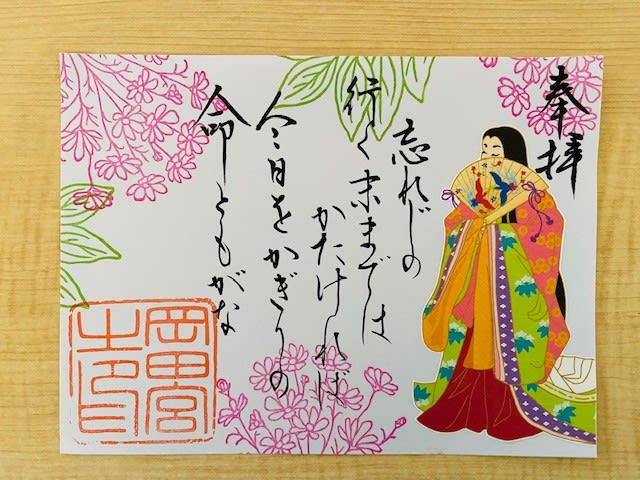 奉拝
忘れじの
行く末までは
かたければ
今日をかぎりの
命ともがな
岡田宮
之印